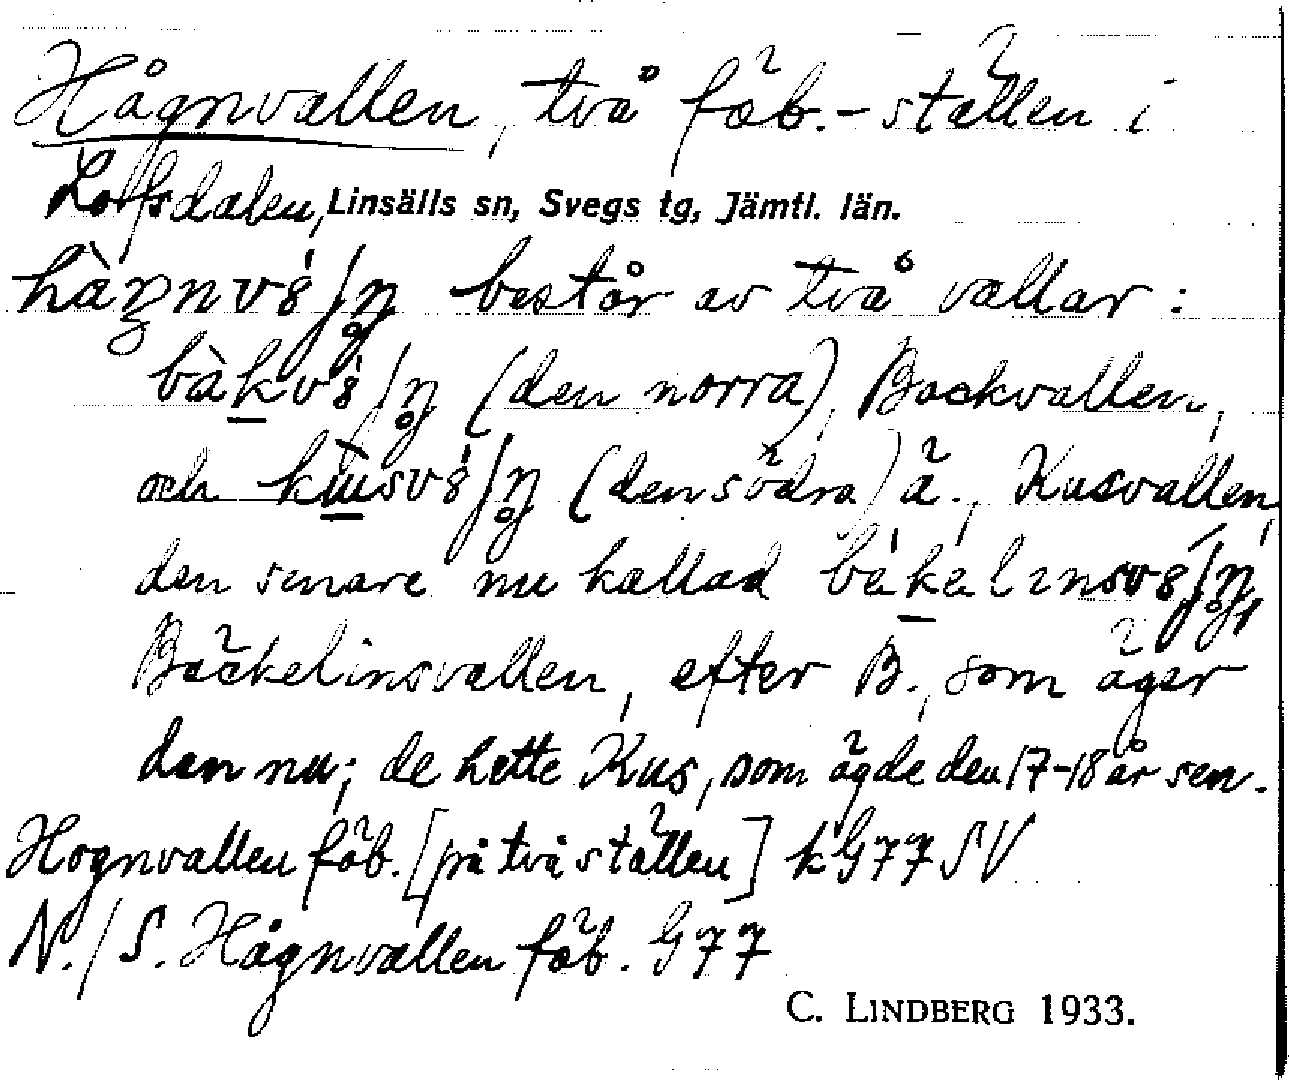 Hågnvallen, två fäb.-ställen i
Lofsdalen, Linsälls sn, Svegs tg, Jämtl. län.
består av två vallar:
(den norra), Backvallen,
och (den södra) ä., Kusvallen,
den senare nu kallad
Bäckelinsvallen, efter B., som äger
den nu; de hette Kus, som ägde den 17-18 år sen.
Hognvallen fäb. [på två ställen] kG77SV
N./S. Hågnvallen fäb. G77
C. LINDBERG 1933.